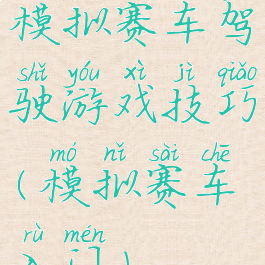 模拟赛车驾
shǐ yóu xì jì qiǎo
驶游戏技巧
mó nǐ sài chē
(模拟赛车
rù mén
入门)